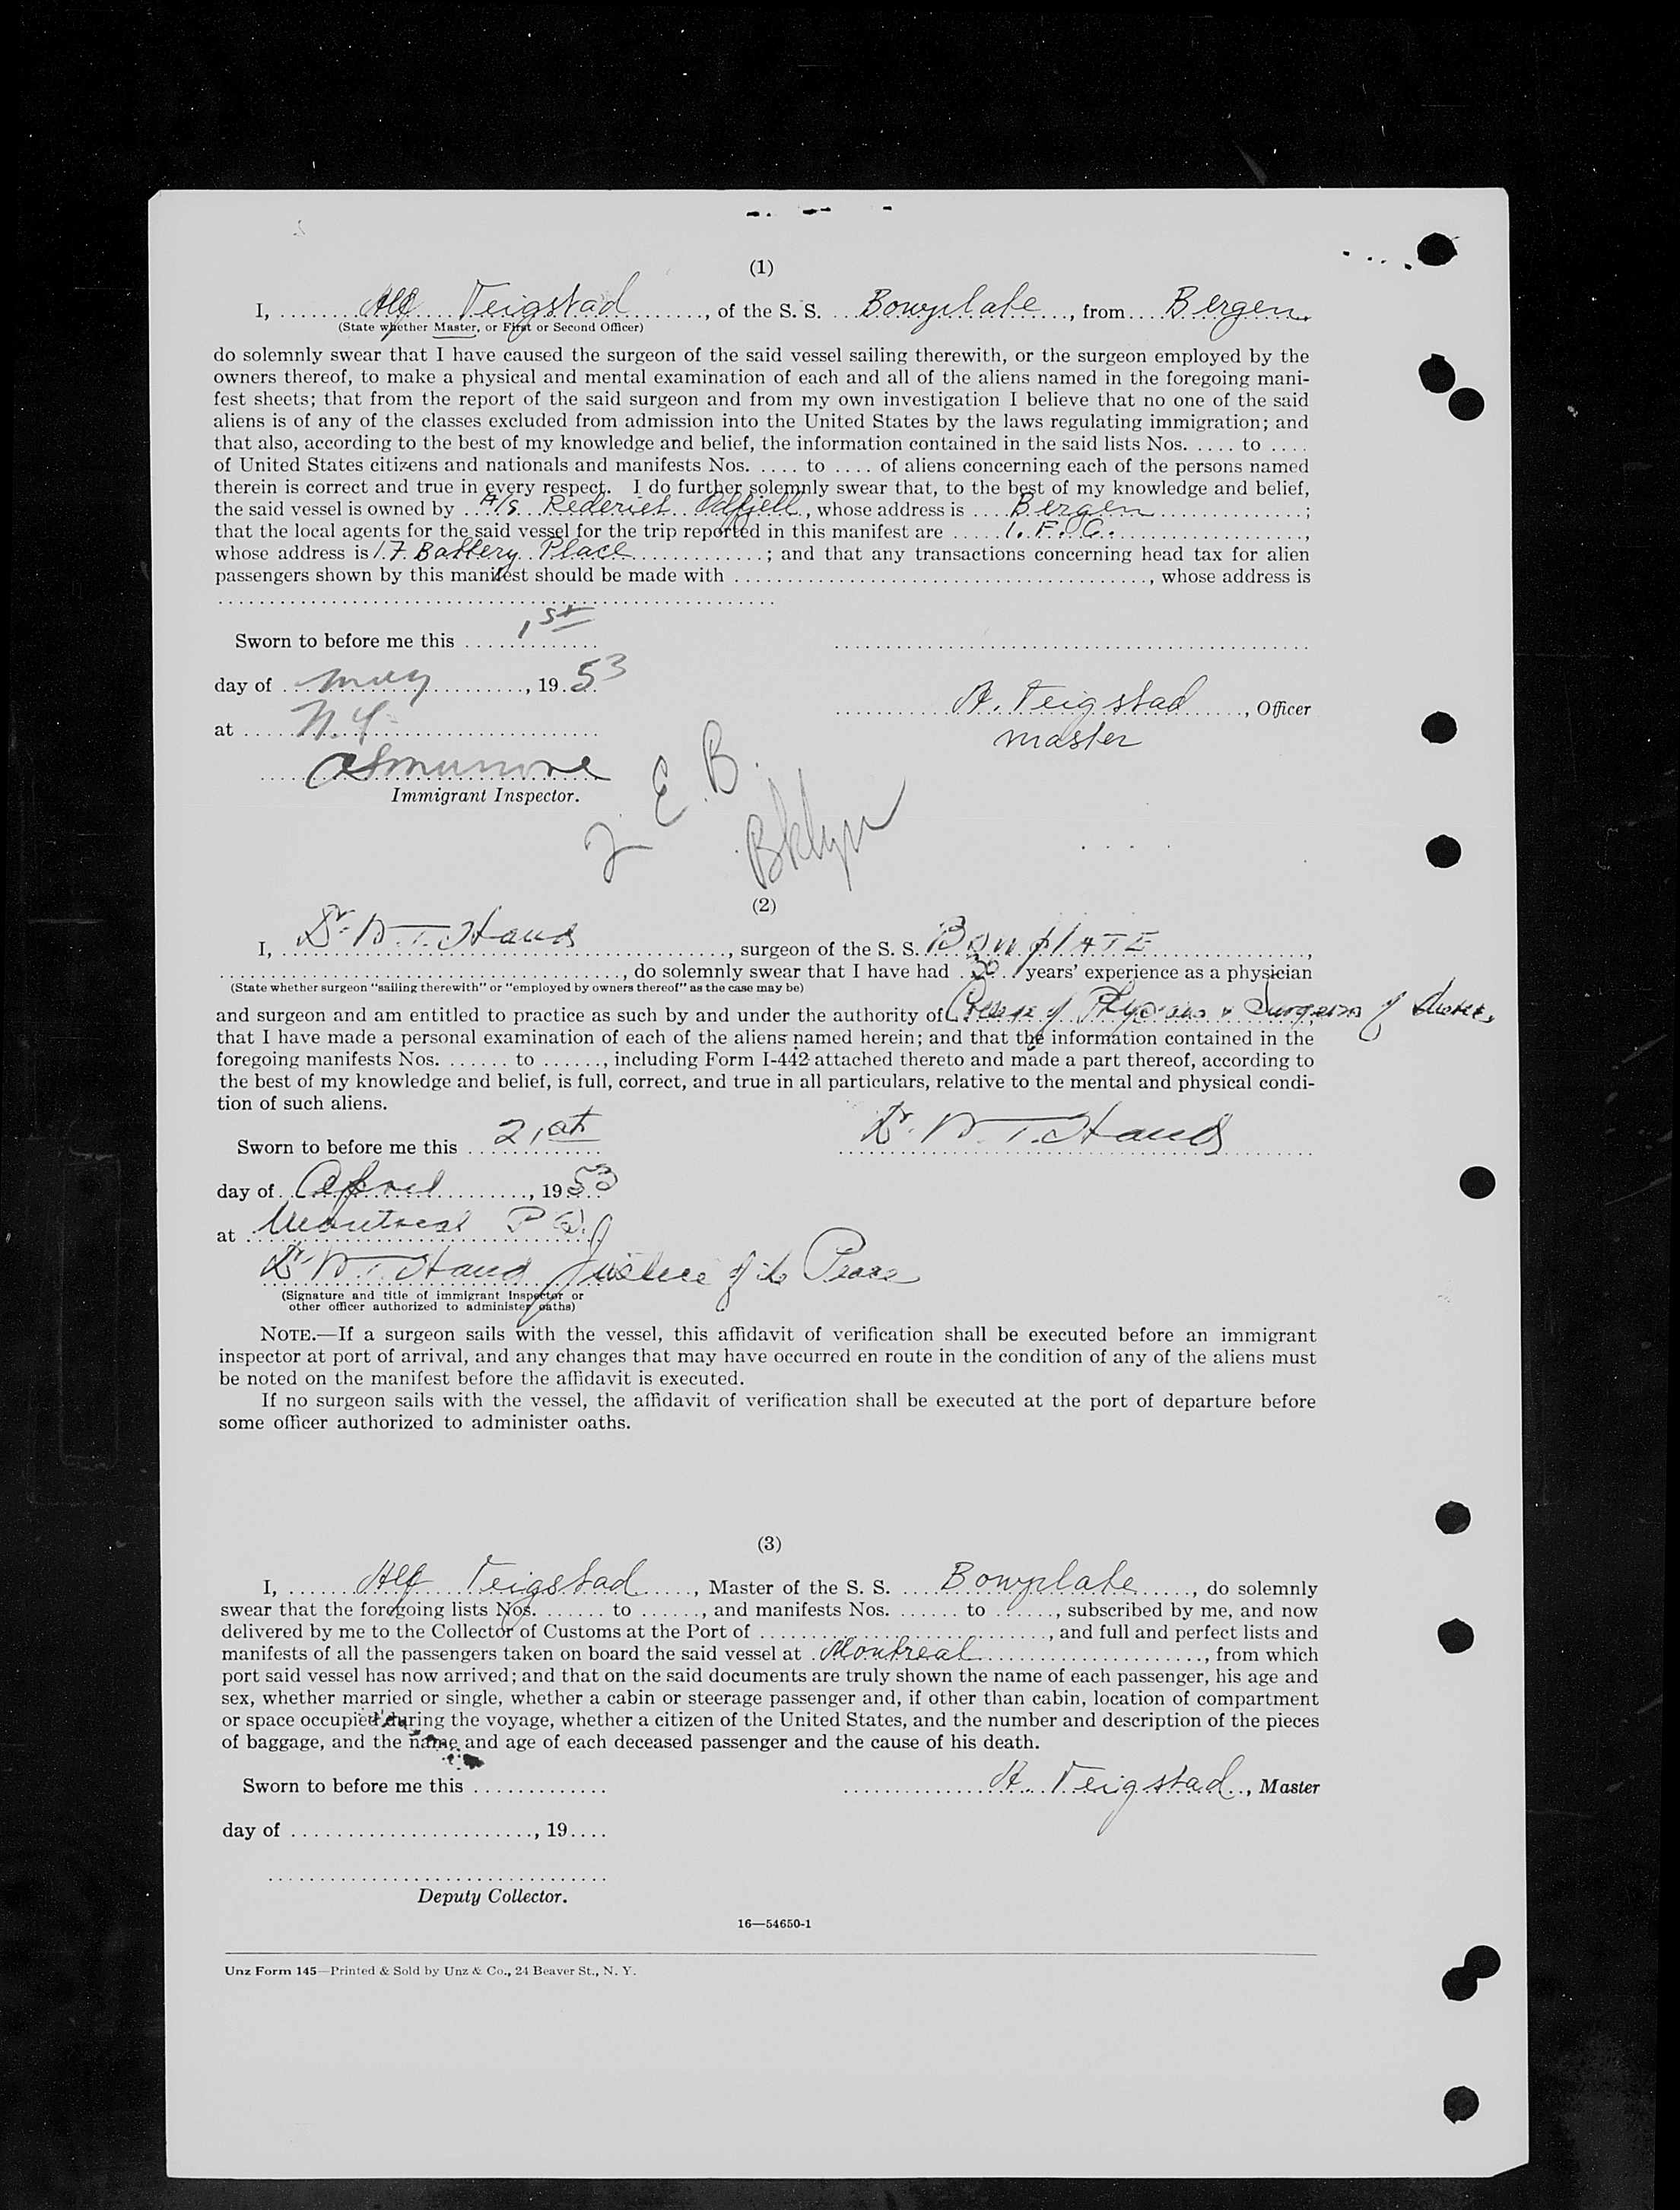 (1)
I, Alf Teigstad, of the S. S. Bowplate, from Bergen.
(State whether Master, or First or Second Officer)
do solemnly swear that I have caused the surgeon of the said vessel sailing therewith, or the surgeon employed by the
owners thereof, to make a physical and mental examination of each and all of the aliens named in the foregoing mani-
fest sheets; that from the report of the said surgeon and from my own investigation I believe that no one of the said
aliens is of any of the classes excluded from admission into the United States by the laws regulating immigration; and
that also, according to the best of my knowledge and belief, the information contained in the said lists Nos. ..... to ....
of United States citizens and nationals and manifests Nos. .... to .... of aliens concerning each of the persons named
therein is correct and true in every respect. I do further solemnly swear that, to the best of my knowledge and belief,
the said vessel is owned by A/S Rederiet Odfjell, whose address is Bergen;
that the local agents for the said vessel for the trip reported in this manifest are I. F. C.,
whose address is 17 Battery Place; and that any transactions concerning head tax for alien
passengers shown by this manifest should be made with ...................., whose address is
Sworn to before me this 1st
day of May, 1953
A. Teigstad, Officer
at N.Y.
master
Immigrant Inspector.
E. B.
Bklyn
(2)
I, Dr. W. T. Hand, surgeon of the S. S. BowplATE,
, do solemnly swear that I have had 30 years' experience as a physician
(State whether surgeon "sailing therewith" or "employed by owners thereof" as the case may be)
and surgeon and am entitled to practice as such by and under the authority of College of Physicians & Surgeons of
that I have made a personal examination of each of the aliens named herein; and that the information contained in the
foregoing manifests Nos. ...... to ......, including Form I-442 attached thereto and made a part thereof, according to
the best of my knowledge and belief, is full, correct, and true in all particulars, relative to the mental and physical condi-
tion of such aliens.
Sworn to before me this 21st
Dr. W. T. Hand
day of April, 1953
at Montreal P Q.
Dr. W. T. Hand Justice of the Peace
(Signature and title of immigrant inspector or
other officer authorized to administer oaths)
NOTE.—If a surgeon sails with the vessel, this affidavit of verification shall be executed before an immigrant
inspector at port of arrival, and any changes that may have occurred en route in the condition of any of the aliens must
be noted on the manifest before the affidavit is executed.
If no surgeon sails with the vessel, the affidavit of verification shall be executed at the port of departure before
some officer authorized to administer oaths.
(3)
I, Alf Teigstad, Master of the S. S. Bowplate, do solemnly
swear that the foregoing lists Nos. ...... to ......, and manifests Nos. ....... to ......, subscribed by me, and now
delivered by me to the Collector of Customs at the Port of ...................., and full and perfect lists and
manifests of all the passengers taken on board the said vessel at Montreal, from which
port said vessel has now arrived; and that on the said documents are truly shown the name of each passenger, his age and
sex, whether married or single, whether a cabin or steerage passenger and, if other than cabin, location of compartment
or space occupied during the voyage, whether a citizen of the United States, and the number and description of the pieces
of baggage, and the name and age of each deceased passenger and the cause of his death.
Sworn to before me this .............
A. Teigstad, Master
day of ........................, 19....
Deputy Collector.
16—54650-1
Unz Form 145—Printed & Sold by Unz & Co., 24 Beaver St., N. Y.